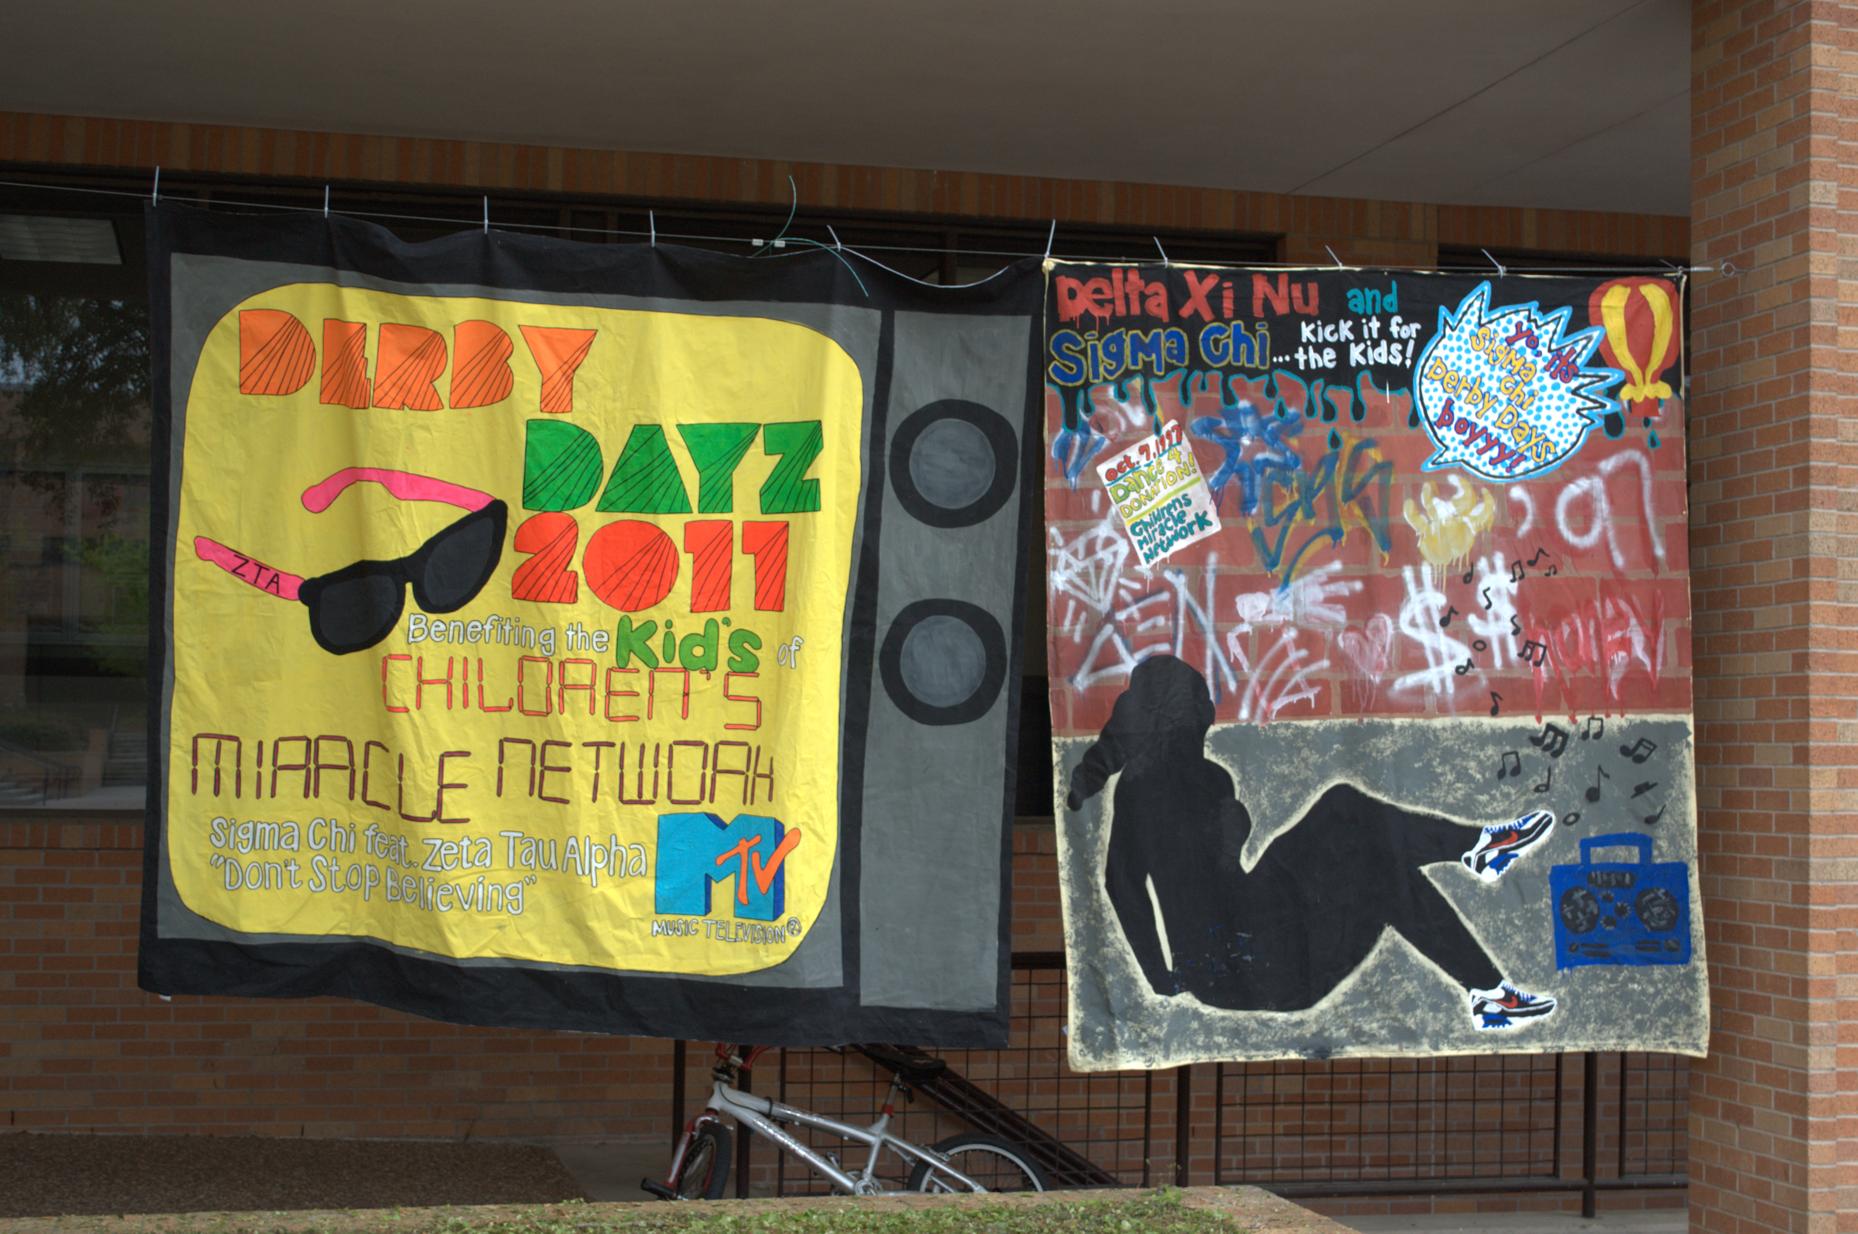 DERBY
DAYZ
2011
ZTA
Benefiting the Kid's of
CHILDREN'S
MIRACLE NETWORK
Sigma Chi feat. Zeta Tau Alpha
"Don't Stop Believing"
MTV
MUSIC TELEVISION®
Delta Xi Nu and
Sigma Chi ... Kick it for
the Kids!
Yo, it's
Sigma
Chi
Derby Days
boyyy!
Oct. 7, 1997
Dance 4
DONATION!
Childrens
Miracle
Network
'97
ΔΞN
$ $ MONEY